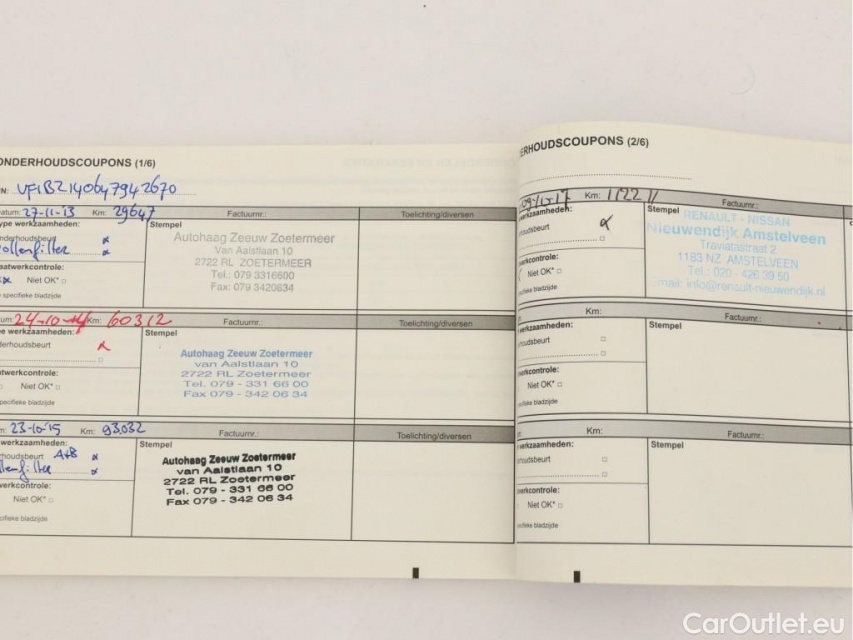 ONDERHOUDSCOUPONS (1/6)
N: VF1BZ140647942670
atum: 27-11-13 Km: 29647 Factuurnr.: Toelichting/diversen
ype werkzaamheden:
nderhoudsbeurt
ollenfilter
aatwerkcontrole:
Niet OK*
specifieke bladzijde
Stempel
Autohaag Zeeuw Zoetermeer
Van Aalstlaan 10
2722 RL ZOETERMEER
Tel.: 079 3316600
Fax: 079 3420634
um: 24-10-14 Km: 60312 Factuurnr.: Toelichting/diversen
pe werkzaamheden:
derhoudsbeurt
atwerkcontrole:
Niet OK*
specifieke bladzijde
Stempel
Autohaag Zeeuw Zoetermeer
van Aalstlaan 10
2722 RL Zoetermeer
Tel. 079 - 331 66 00
Fax 079 - 342 06 34
m: 23-10-15 Km: 93.032 Factuurnr.: Toelichting/diversen
werkzaamheden:
rhoudsbeurt A+B
llenfilter
werkcontrole:
Niet OK*
ecifieke bladzijde
Stempel
Autohaag Zeeuw Zoetermeer
van Aalstlaan 10
2722 RL Zoetermeer
Tel. 079 - 331 66 00
Fax 079 - 342 06 34
ERHOUDSCOUPONS (2/6)
Km: Factuurnr.:
werkzaamheden:
oudsbeurt
werkcontrole:
Niet OK*
ecifieke bladzijde
Stempel
RENAULT - NISSAN
Nieuwendijk Amstelveen
Traviatastraat 2
1183 NZ AMSTELVEEN
Tel.: 020 - 426 39 50
mail: info@renault-nieuwendijk.nl
Km: Factuurnr.:
werkzaamheden:
houdsbeurt
werkcontrole:
Niet OK*
ecifieke bladzijde
Stempel
Km: Factuurnr.:
werkzaamheden:
houdsbeurt
werkcontrole:
Niet OK*
ecifieke bladzijde
Stempel
CarOutlet.eu